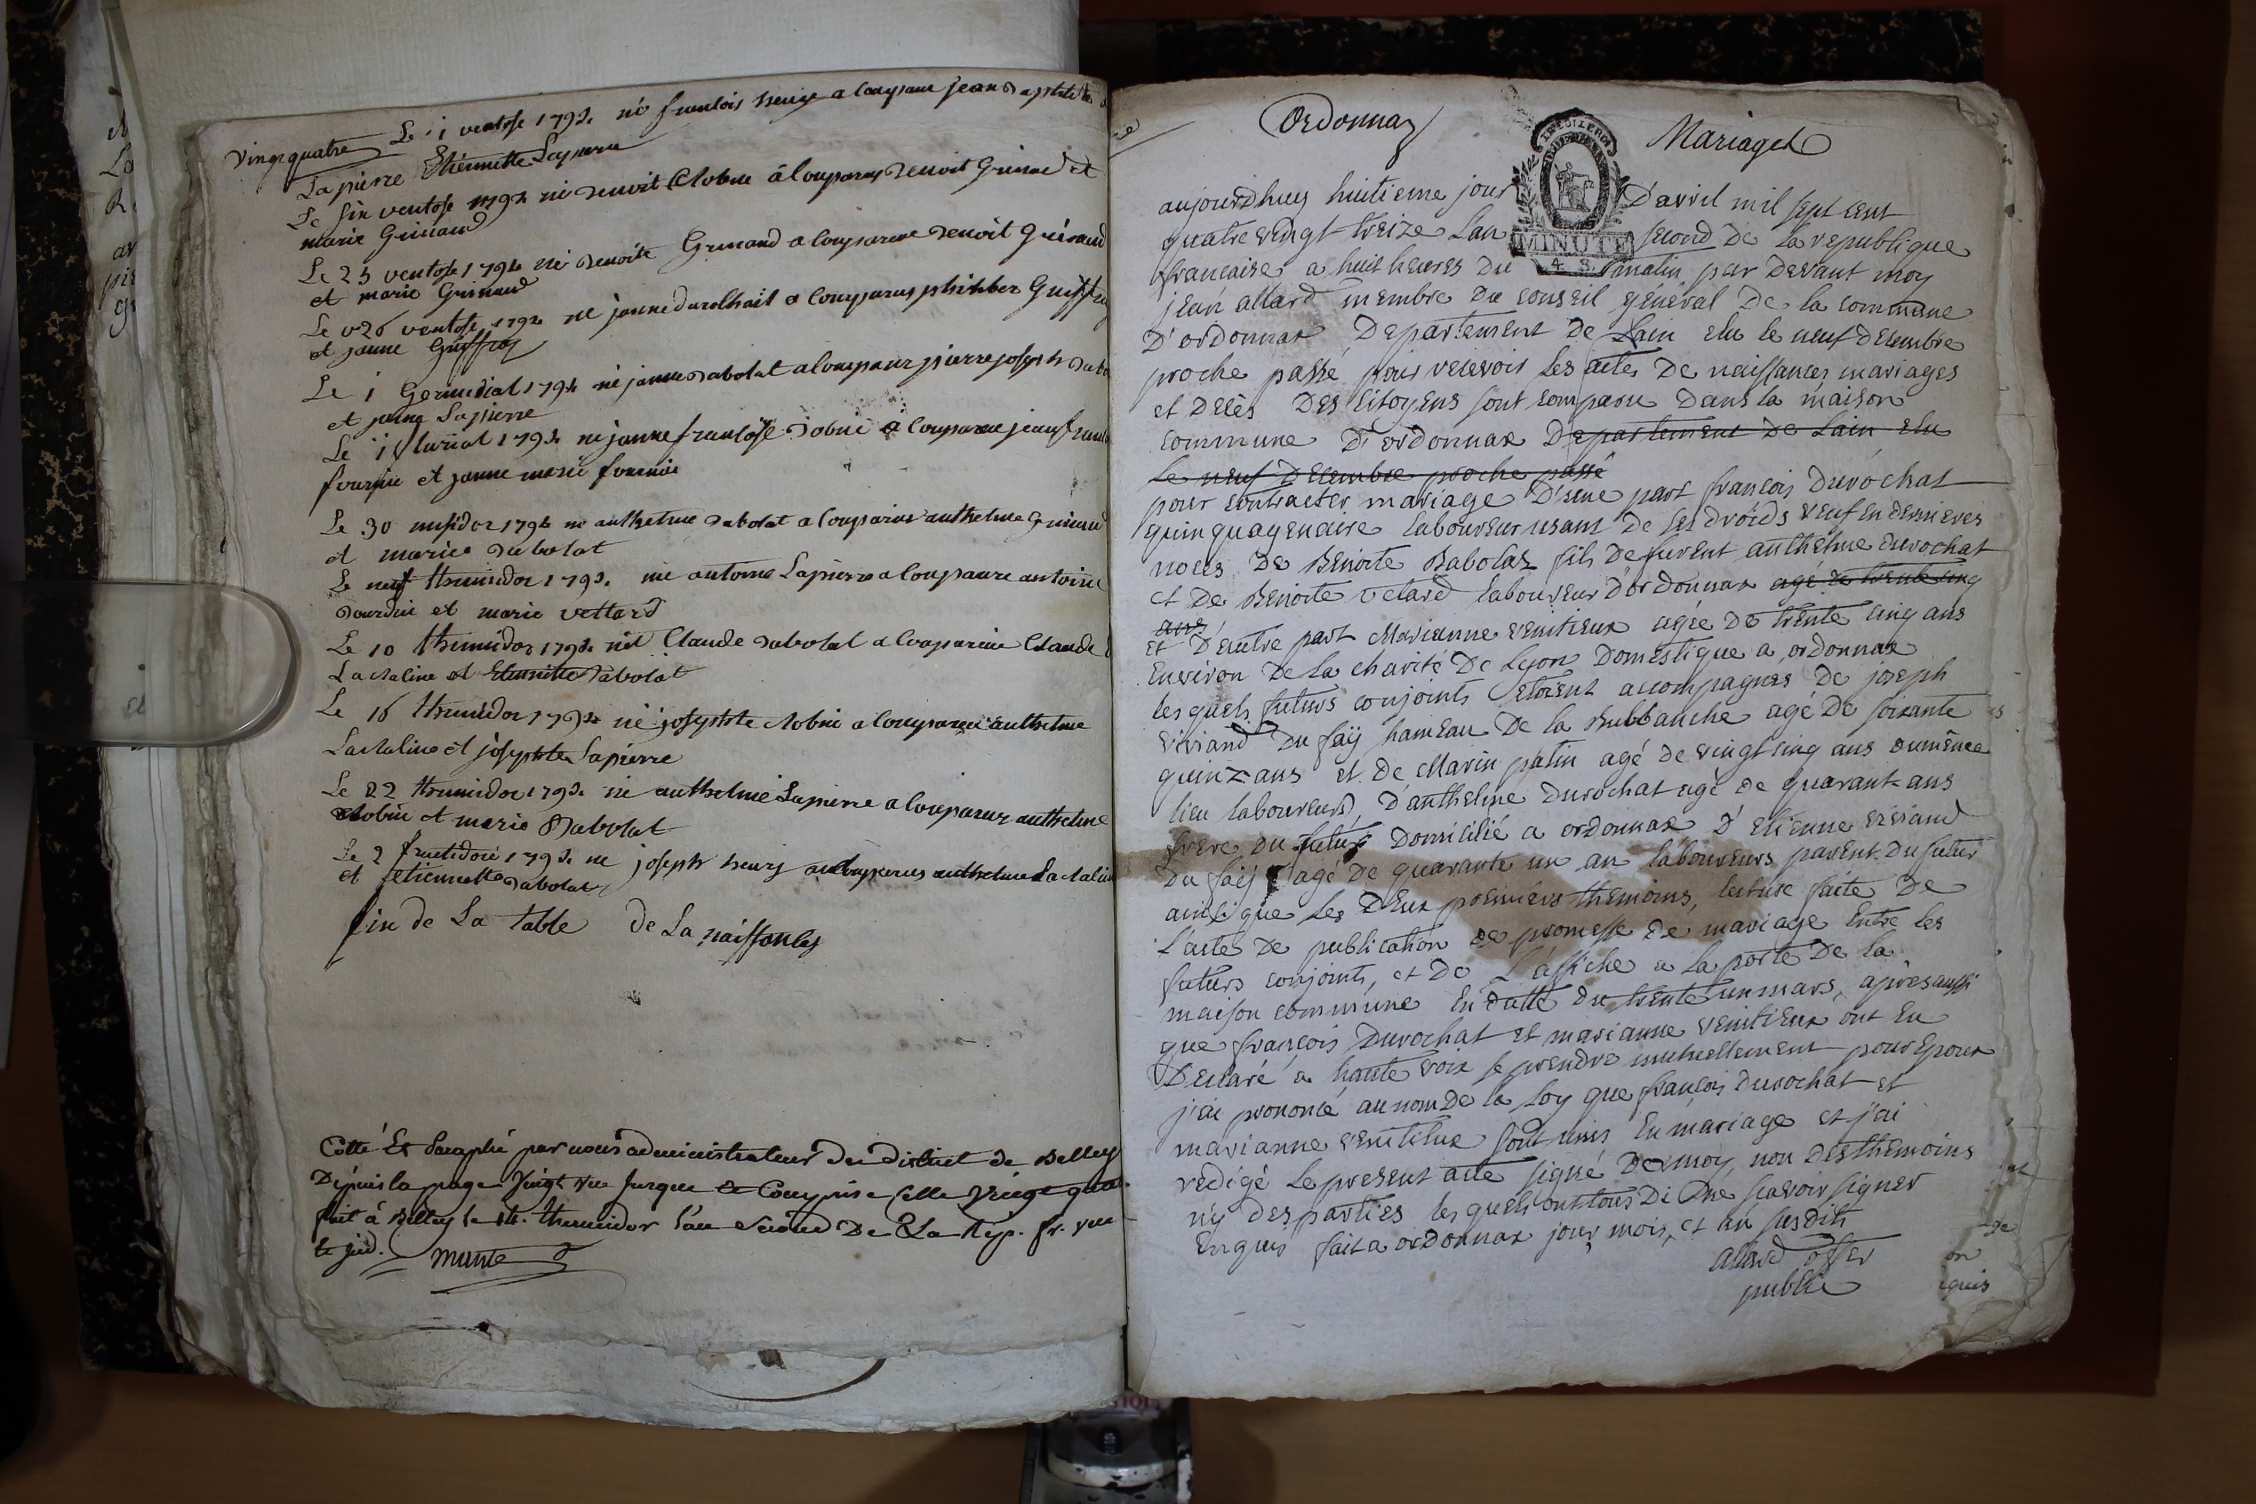 vingt quatre Le 1 ventose 1794 né francois henry a Comparu jean
Lapierre Etiennette Lapierre
Le six ventose 1794 né benoit Clobue a Comparus benoit Guinand et
marie Guinand
Le 25 ventose 1794 né benoite Guinand a Comparue benoit Guinand
et marie Guinand
Le 26 ventose 1794 né janne a Comparus philiber Guiffray
et janne Guiffray
Le 1 Germinial 1794 né janne babolat a Comparus pierre joseph
et Lapierre
Le 1 flurial 1794 né janne francoise a Comparue jean
fournie et janne marie fournie
Le 30 mesidor 1794 né anthelme babolat a Comparus anthelme Guinand
et marie babolat
Le neuf thermidor 1794 né antoine Lapierre a Comparue antoine
et marie vettard
Le 10 thermidor 1794 né Claude babolat a Comparue Claude
et babolat
Le 16 thermidor 1794 né josephte a Comparue anthelme
et josephte Lapierre
Le 22 thermidor 1794 né anthelme Lapierre a Comparus anthelme
et marie Babolat
Le 2 fructidor 1794 né joseph henry a Comparus anthelme
et etiennette babolat
fin de La table de La naissances
Cotté Et Paraphé par nous administrateur du district de Belley
Depuis la page vingt une jusque et Compris Celle vingt quatre
fait à Belley le 14 thermidor l'an second De La Rep. fr. une
et ind.
Ordonnaz Mariages
MINUTE
4 S.
aujourdhuy huitieme jour D'avril mil sept cent
quatre vingt treize Lan second De La republique
francaise a huit heures Du matin par Devant moy
jean allard membre Du conseil général De la commune
D'ordonnax Departement De Lain elu le neuf Decembre
proche passé pour recevoir Les actes De naissances mariages
et Decès Des Citoyens sont comparu Dans la maison
commune D'ordonnax Departement De Lain elu
Le neuf Decembre proche passé
pour contracter mariage D'une part francois Durochat
quinquagenaire laboureur usant De ses droids veuf en dernieres
noces De Benoite Babolaz fils De furent anthelme Durochat
et De Benoite vetard laboureur D'ordonnax agé De trente cinq
ans
et D'eautre part Marianne venitieux agée De trente cinq ans
Environ De la charité De Lyon Domestique a ordonnax
les quels futurs conjoints etoient accompagnes De joseph
viviand Du fay hameau De la Bubbanche agé De soixante
quinz ans et De Marin patin agé de vingt cinq ans Dumême
lieu laboureurs, D'anthelme Durochat agé de quarant ans
frere Du futur Domicilié a ordonnax D'etienne viviand
Du fay agé De quarante un an laboureurs parent Du futur
ainsi que Les Deux premiers themoins, lecture faite De
L'acte De publication De promesse De mariage Entre les
futurs conjoints, et De L'affiche a La porte De la
maison commune En datte Du trente un mars, après aussi
que francois Durochat et marianne venitieux ont Eu
Declaré a haute voix se prendre mutuellement pour Epoux
j'ai prononcé au nom De la Loy que francois Durochat et
marianne venitieux sont unis En mariage et j'ai
redigé Le present acte signé De moy non Des themoins
n'y Des parties les quels ont tous Di ne scavoir signer
Enquis fait a ordonnax jour, mois, et an susdits
allard offier
public